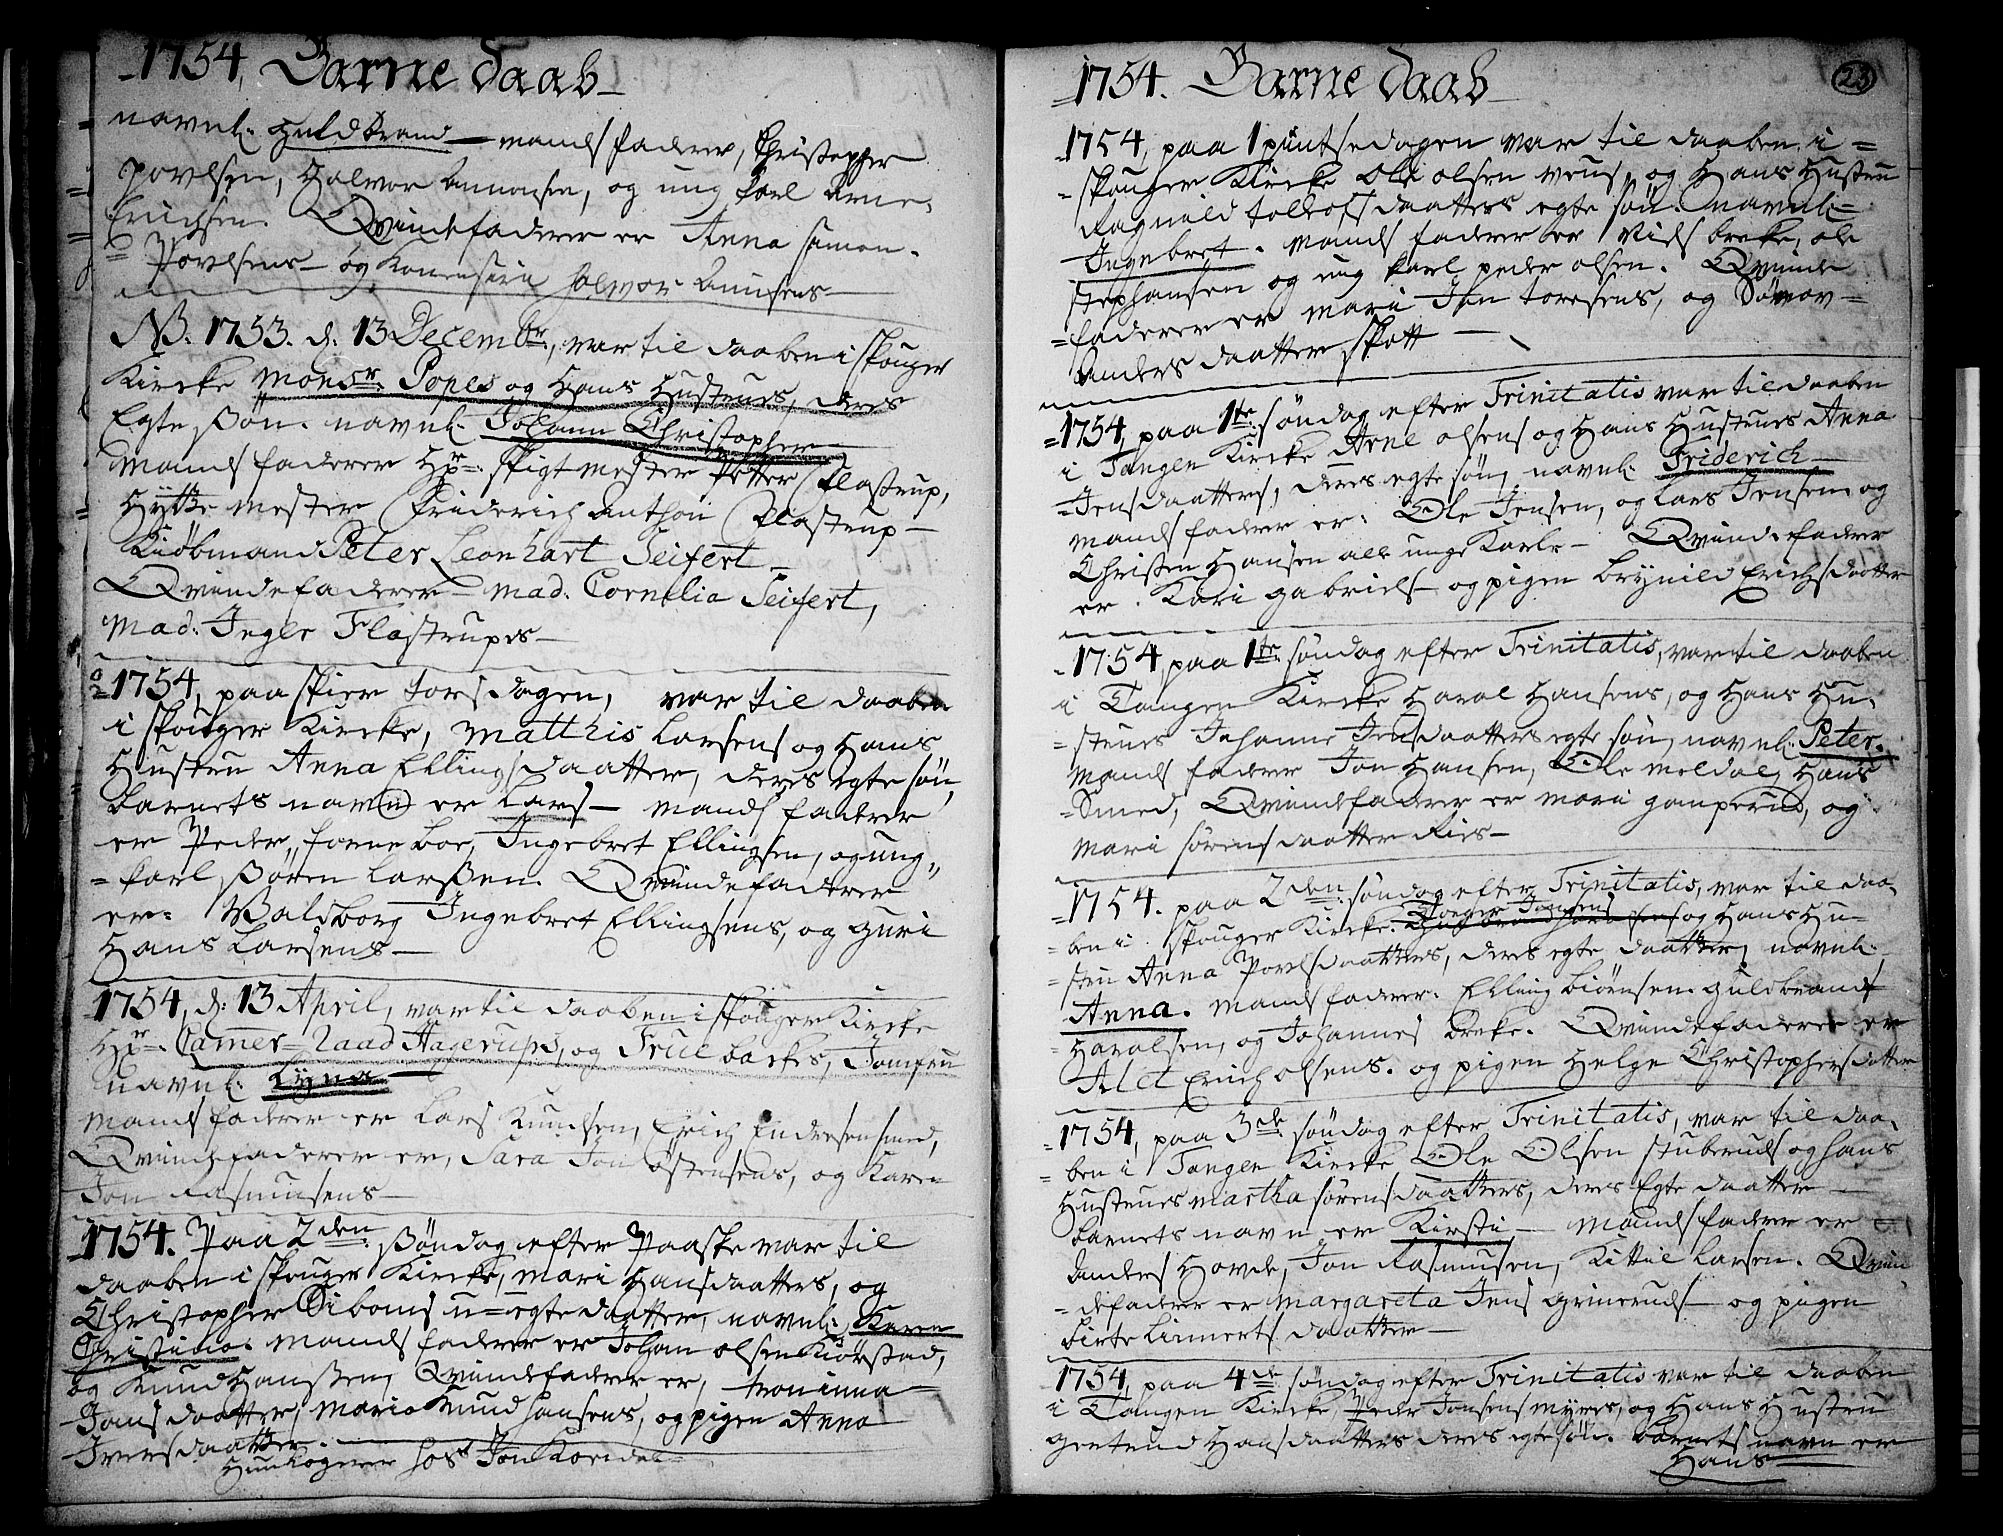 1754, Barne daab
navnl. Huldbrand — mands fadere, Christopher
Povelsen, Halvor Amonsen, og ung karl Arne
Erichsen. Qvindefadere er Anna Simon
Povelsens — og Konen Siri Halvor Amunsens —
NB. 1753. d. 13 Decembr., var til daaben i Spouger
Kircke Monsr. Popes og Hans Hustrues, deres
Egte Søn. navnl. Johann Christopher
Mands fadere Hr. Stigtmester Petter Flastrup,
Hytte mester Friderich Anthon Flastrup —
Kiøbmand Peter Leonhart Seifert —
Qvindefadere — mad. Cornelia Seifert,
Mad. Inger Flastrupes —
1754, paa skier torsdagen, var til daaben
i Spouger Kircke, Matthis Larsens og Hans
Hustru Anna Ellingsdaatter, deres egte søn,
barnets navn er Lars — mands fadere
er Peder forneboe, Ingebret Ellingsen, og ung
karl Søren Larssen. Qvindefadere
er: Walsborg Ingebret Ellingsens, og Guri
Hans Larsens —
1754, d: 13 April, var til daaben i Spouger Kircke
Hr. Camer-Raad Hagerups, og Frue barks, Jomfru
navnl:
Mands fadere er Lars Knudsen, Erich Endresen smed,
Qvindefadere er, Sara Jon Østensens, og Karen
Jon Rasmusens —
1754. Paa 2den Søndag efter Paaske var til
daaben i Spouger Kircke, Mari Hansdaatters, og
Christopher Siboni u-egte daatter, navnl. Karen
Christina. Mands fadere er Johan Olsen Kiørstad,
og Knud Hanssen, Qvindefadere er,
Jansdaatter, Mari Knud Hansens, og pigen Anna
Iversdaatter.
Hun Logerer hos Jon Korsdal

1754. Barne daab
23
1754, paa 1 pintsedagen var til daaben i
Spouger Kircke Ole Olsen og Hans Hustru
Ragnild Tollefsdaatters egte søn. navnl.
Ingebret. Mands fadere er Niels breke, Ole
Stephansen og ung karl peder Olsen. Qvinde
fadere er mari Jon Toresens, og
Anders daatter skott —
1754, paa 1te søndag efter Trinitatis var til daaben
i Tangen Kircke Arne Olsens og Hans Hustrues Anna
Jensdaatters, deres egte søn, navnl. Friderich —
Mands fadere er: Ole Jensen, og Lars Jensen og
Christen Hansen alle unge Karle — Qvindefadere
er. Kari gabriels og pigen Brynild Erichsdaatter
1754, paa 1te søndag efter Trinitatis, var til daaben
i Tangen Kircke Haral Hansens, og Hans Hu-
strues Johanne Jensdaatters egte søn, navnl. Peter.
Mands fadere Jon Hansen, Ole Meldal, Hans
Smed, Qvindefadere er Mari gamperud, og
Mari sørensdaatter Ries —
1754. paa 2den søndag efter Trinitatis, var til daa-
ben i Spouger Kircke. Torger Jonsens og Hans Hu-
stru Anna Povelsdaatters, deres egte daatter, navnl.
Anna. Mands fadere. Elling Biørnsen. Guldbrand
Haralsen, og Johannes breke. Qvindefadere er
Alet Erich Olsens. og pigen Helge Christophersdatter
1754, paa 3de søndag efter Trinitatis, var til daa-
ben i Tangen Kircke Ole Olsen stuberuds og hans
Hustrues Martha sørensdaatters, deres Egte daatter
barnets navn er Kirsti — Mands fadere er
Anders Horde, Jon Rasmusen, Kittil Larsen. Qvin-
defadere er margareta Jens grinerud — og pigen
Birte Linnertsdaatter —
1754, paa 4de søndag efter Trinitatis var til daaben
i Tangen Kircke, Peder Jonsens myres, og Hans Hustru
gertrud Hansdaatters deres egte søn. barnets navn er
Hans